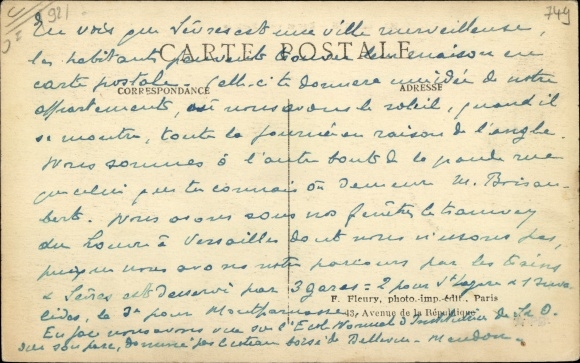 921
749
Tu vois que Sèvres est une ville merveilleuse,
les habitants peuvent trouver leur maison en
CARTE POSTALE
carte postale. Celle-ci te donnera une idée de notre
CORRESPONDANCE
ADRESSE
appartement, où nous avons le soleil, quand il
se montre, toute la journée en raison de l'angle.
Nous sommes à l'autre bout de la grande rue
que celui que tu connais où demeure M. Boisau-
bert. Nous avons sous nos fenêtres le tramway
du Louvre à Versailles dont nous n'usons pas,
puisque nous avons notre parcours par les trains
Sèvres est desservi par 3 gares = 2 pour St Lazare & Inva-
F. Fleury, photo.-imp.-édit., Paris
lides, la 3e pour Montparnasse.
43, Avenue de la République
En face nous avons vue sur l'Ecole Normale d'Institutrices de S & O.
sur son parc, dominé par le coteau boisé de Bellevue-Meudon.